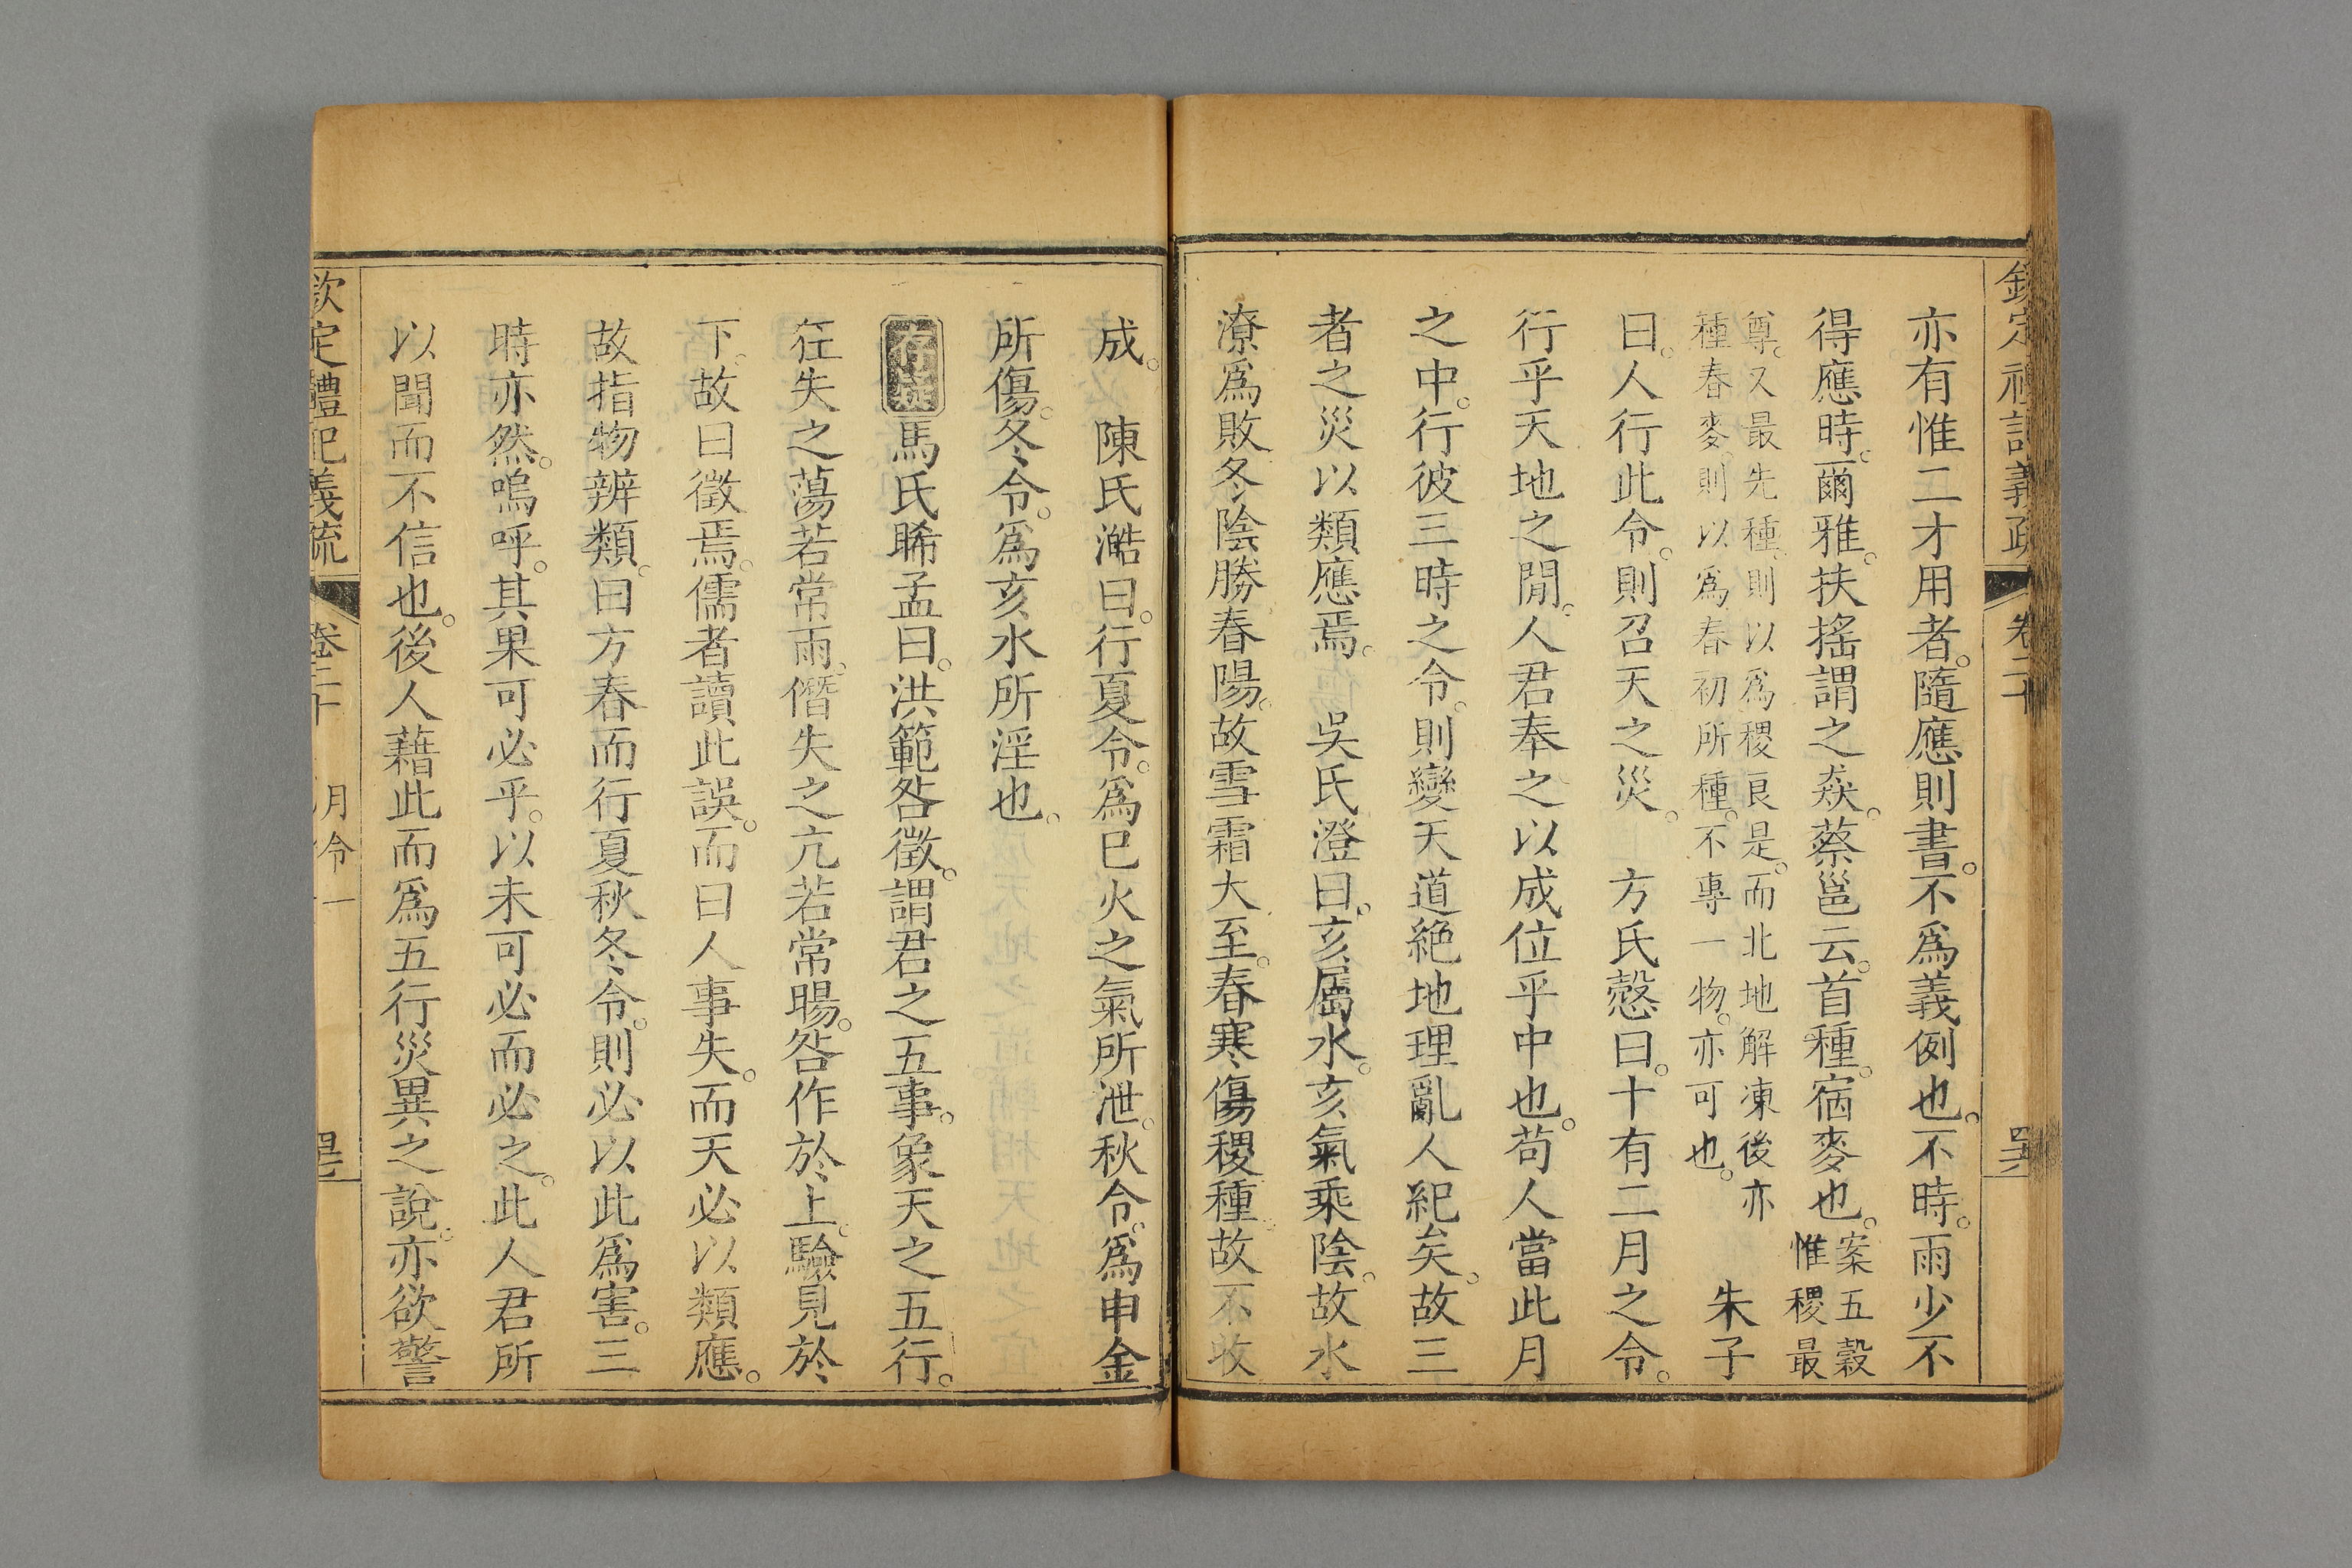 欽定禮記義疏 卷二十
亦有惟二才用者。隨應則書。不爲義例也。不時。雨少不
得應時。爾雅。扶搖謂之猋。蔡邕云。首種。宿麥也。案五穀惟稷最
尊。又最先種。則以爲稷良是。而北地解凍後亦種春麥。則以爲春初所種。不專一物。亦可也。 朱子
曰。人行此令。則召天之災。 方氏慤曰。十有二月之令。
行乎天地之閒。人君奉之以成位乎中也。苟人當此月
之中。行彼三時之令。則變天道絕地理亂人紀矣。故三
者之災以類應焉。 吳氏澄曰。亥屬水。亥氣乘陰。故水
潦爲敗冬陰勝春陽。故雪霜大至。春寒傷稷種故不收
成。 陳氏澔曰。行夏令。爲巳火之氣所泄。秋令。爲申金
所傷。冬令。爲亥水所淫也。
存疑 馬氏睎孟曰。洪範咎徵。謂君之五事。象天之五行。
狂失之蕩若常雨。僭失之亢若常暘。咎作於上。驗見於
下。故曰徵焉。儒者讀此誤。而曰人事失。而天必以類應。
故指物辨類。曰方春而行夏秋冬令。則必以此爲害。三
時亦然。嗚呼。其果可必乎。以未可必而必之。此人君所
以聞而不信也。後人藉此而爲五行災異之說。亦欲警
欽定禮記義疏 卷二十 月令一